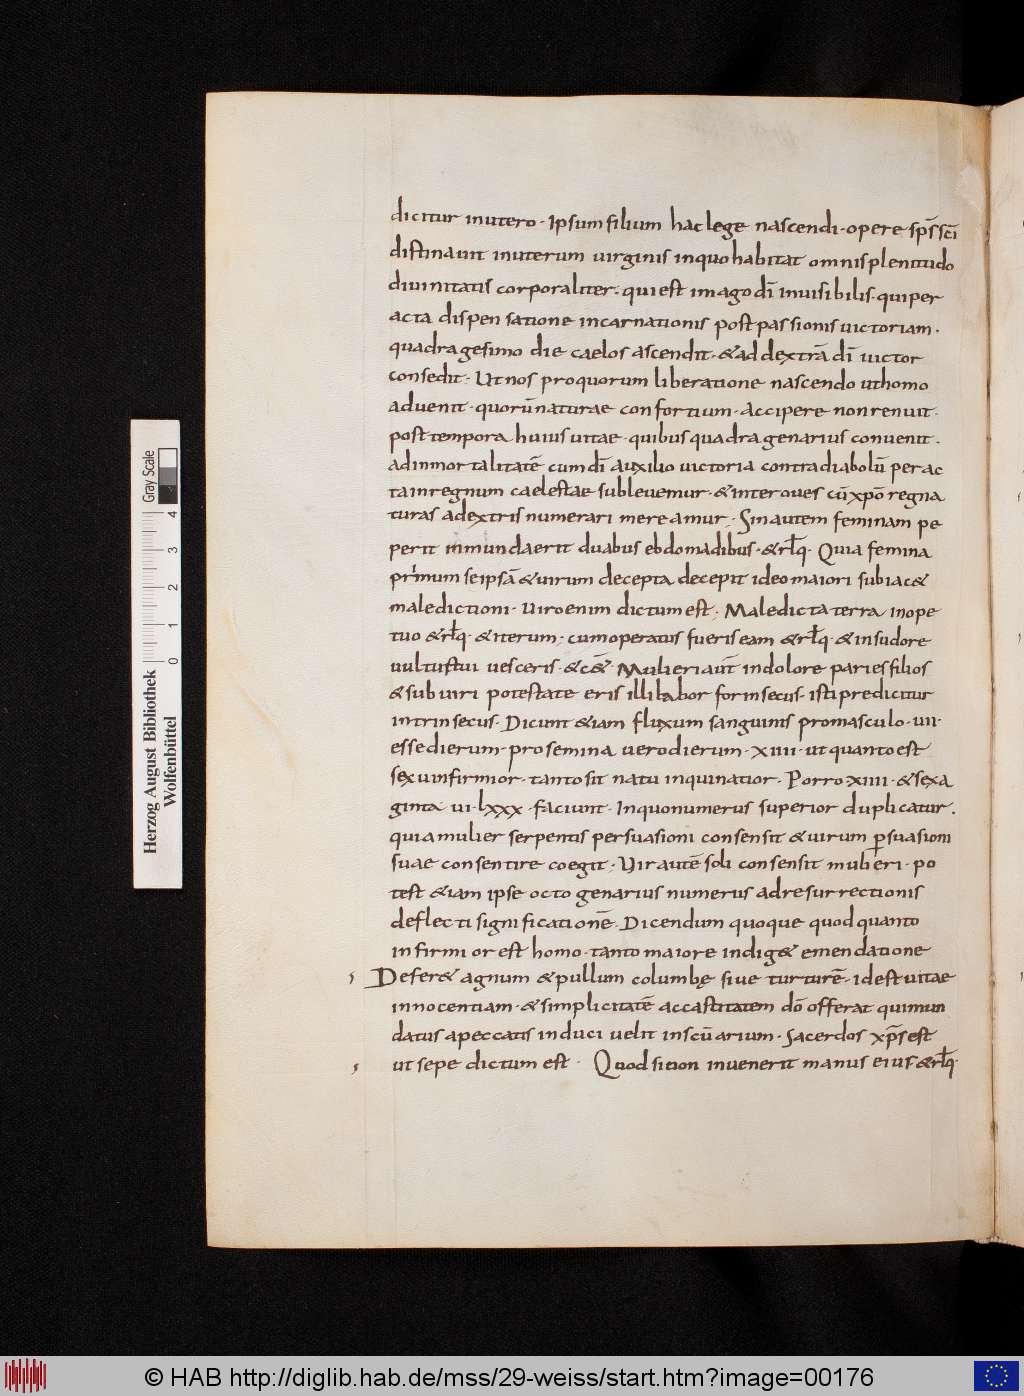 dicitur inutero · Ipsum filium hac lege nascendi · opere sp̄s sc̄i
distinauit inuterum uirginis inquo habitat omnis plenitudo
diuinitatis corporaliter · qui est imago dī inuisibilis · qui per
acta dispensatione incarnationis post passionis uictoriam ·
quadragesimo die caelos ascendit · & ad dextrā dī uictor
consedit · Ut nos pro quorum liberatione nascendo ut homo
aduenit · quorū naturae confortium · accipere non renuit ·
post tempora huius uitae · quibus quadragenarius conuenit ·
ad inmortalitatē cum dī auxilio uictoria contra diabolū perac
ta in regnum caelestae subleuemur · & inter oues cū xp̄o regna
turas a dextris numerari mereamur · Sin autem feminam pe
perit inmunda erit duabus ebdomadibus · & rl̄q · Quia femina
primum se ipsā & uirum decepta decepit ideo maiori subiac&
maledictioni · Uiro enim dictum est · Maledicta terra in ope
tuo & rl̄q · & iterum · cum operatus fueris eam & rl̄q · & in sudore
uultus tui uesceris · & c&̄ Mulieri aut̄ in dolore paries filios
& sub uiri potestate eris illi labor forinsecus · isti predicitur
intrinsecus · Dicunt &iam fluxum sanguinis pro masculo · uii ·
esse dierum · pro femina uero dierum · xiiii · ut quanto est
sexu infirmior · tanto sit natu inquinatior · Porro xiiii · & sexa
ginta ui · lxxx · faciunt · In quo numerus superior duplicatur ·
quia mulier serpentis persuasioni consensit & uirum p̱suasioni
suae consentire coegit · Uir autē soli consensit mulieri · po
test &iam ipse octogenarius numerus ad resurrectionis
deflecti significationē · Dicendum quoque quod quanto
infirmior est homo · tanto maiore indig& emendatione
Defer& agnum & pullum columbę siue turturē · id est uitae
innocentiam · & simplicitatē ac castitatem dō offerat qui mun
datus a peccatis induci uelit in sc̄uarium · Sacerdos xp̄s est
ut sepe dictum est · Quod si non inuenerit manus eius · & rl̄q ·
Herzog August Bibliothek
Wolfenbüttel
0 1 2 3 4
Gray Scale
© HAB http://diglib.hab.de/mss/29-weiss/start.htm?image=00176